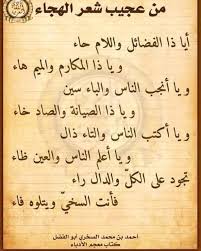 من عجيب شعر الهجاء
أيا ذا الفضائل واللام حاء
و يا ذا المكارم والميم هاء
و يا أنجب الناس والباء سين
و يا ذا الصيانة والصاد خاء
و يا أكتب الناس والتاء ذال
و يا أعلم الناس والعين ظاء
تجود على الكلّ والدال راء
فأنت السخيّ ويتلوه فاء
أحمد بن محمد السخري أبو الفضل
كتاب معجم الأدباء